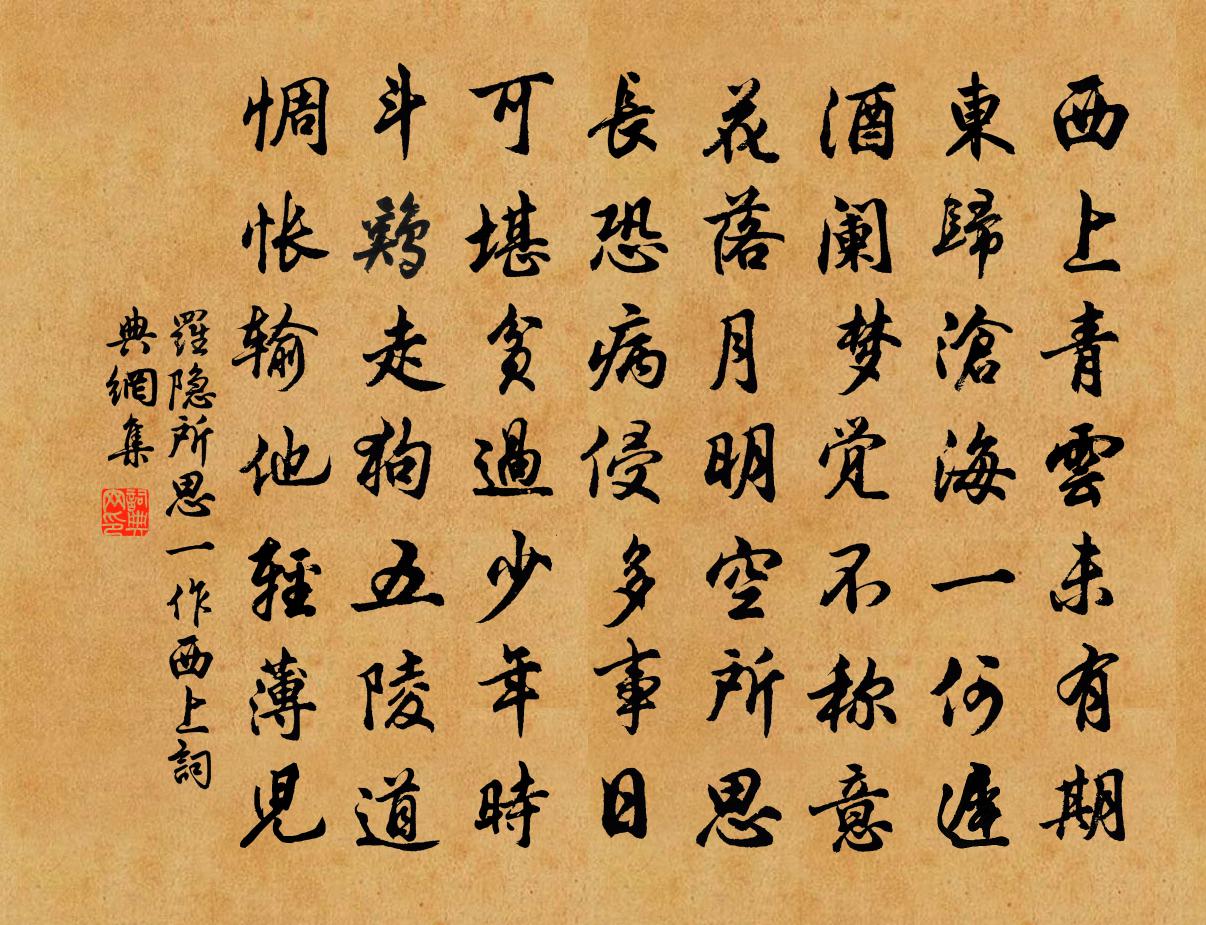 西上青雲未有期
東歸滄海一何遲
酒阑梦觉不称意
花落月明空所思
長恐病侵多事日
可堪貧過少年時
斗鷄走狗五陵道
惆怅输他輕薄児
羅隐所思一作西上詞
典網集
詞典
网印